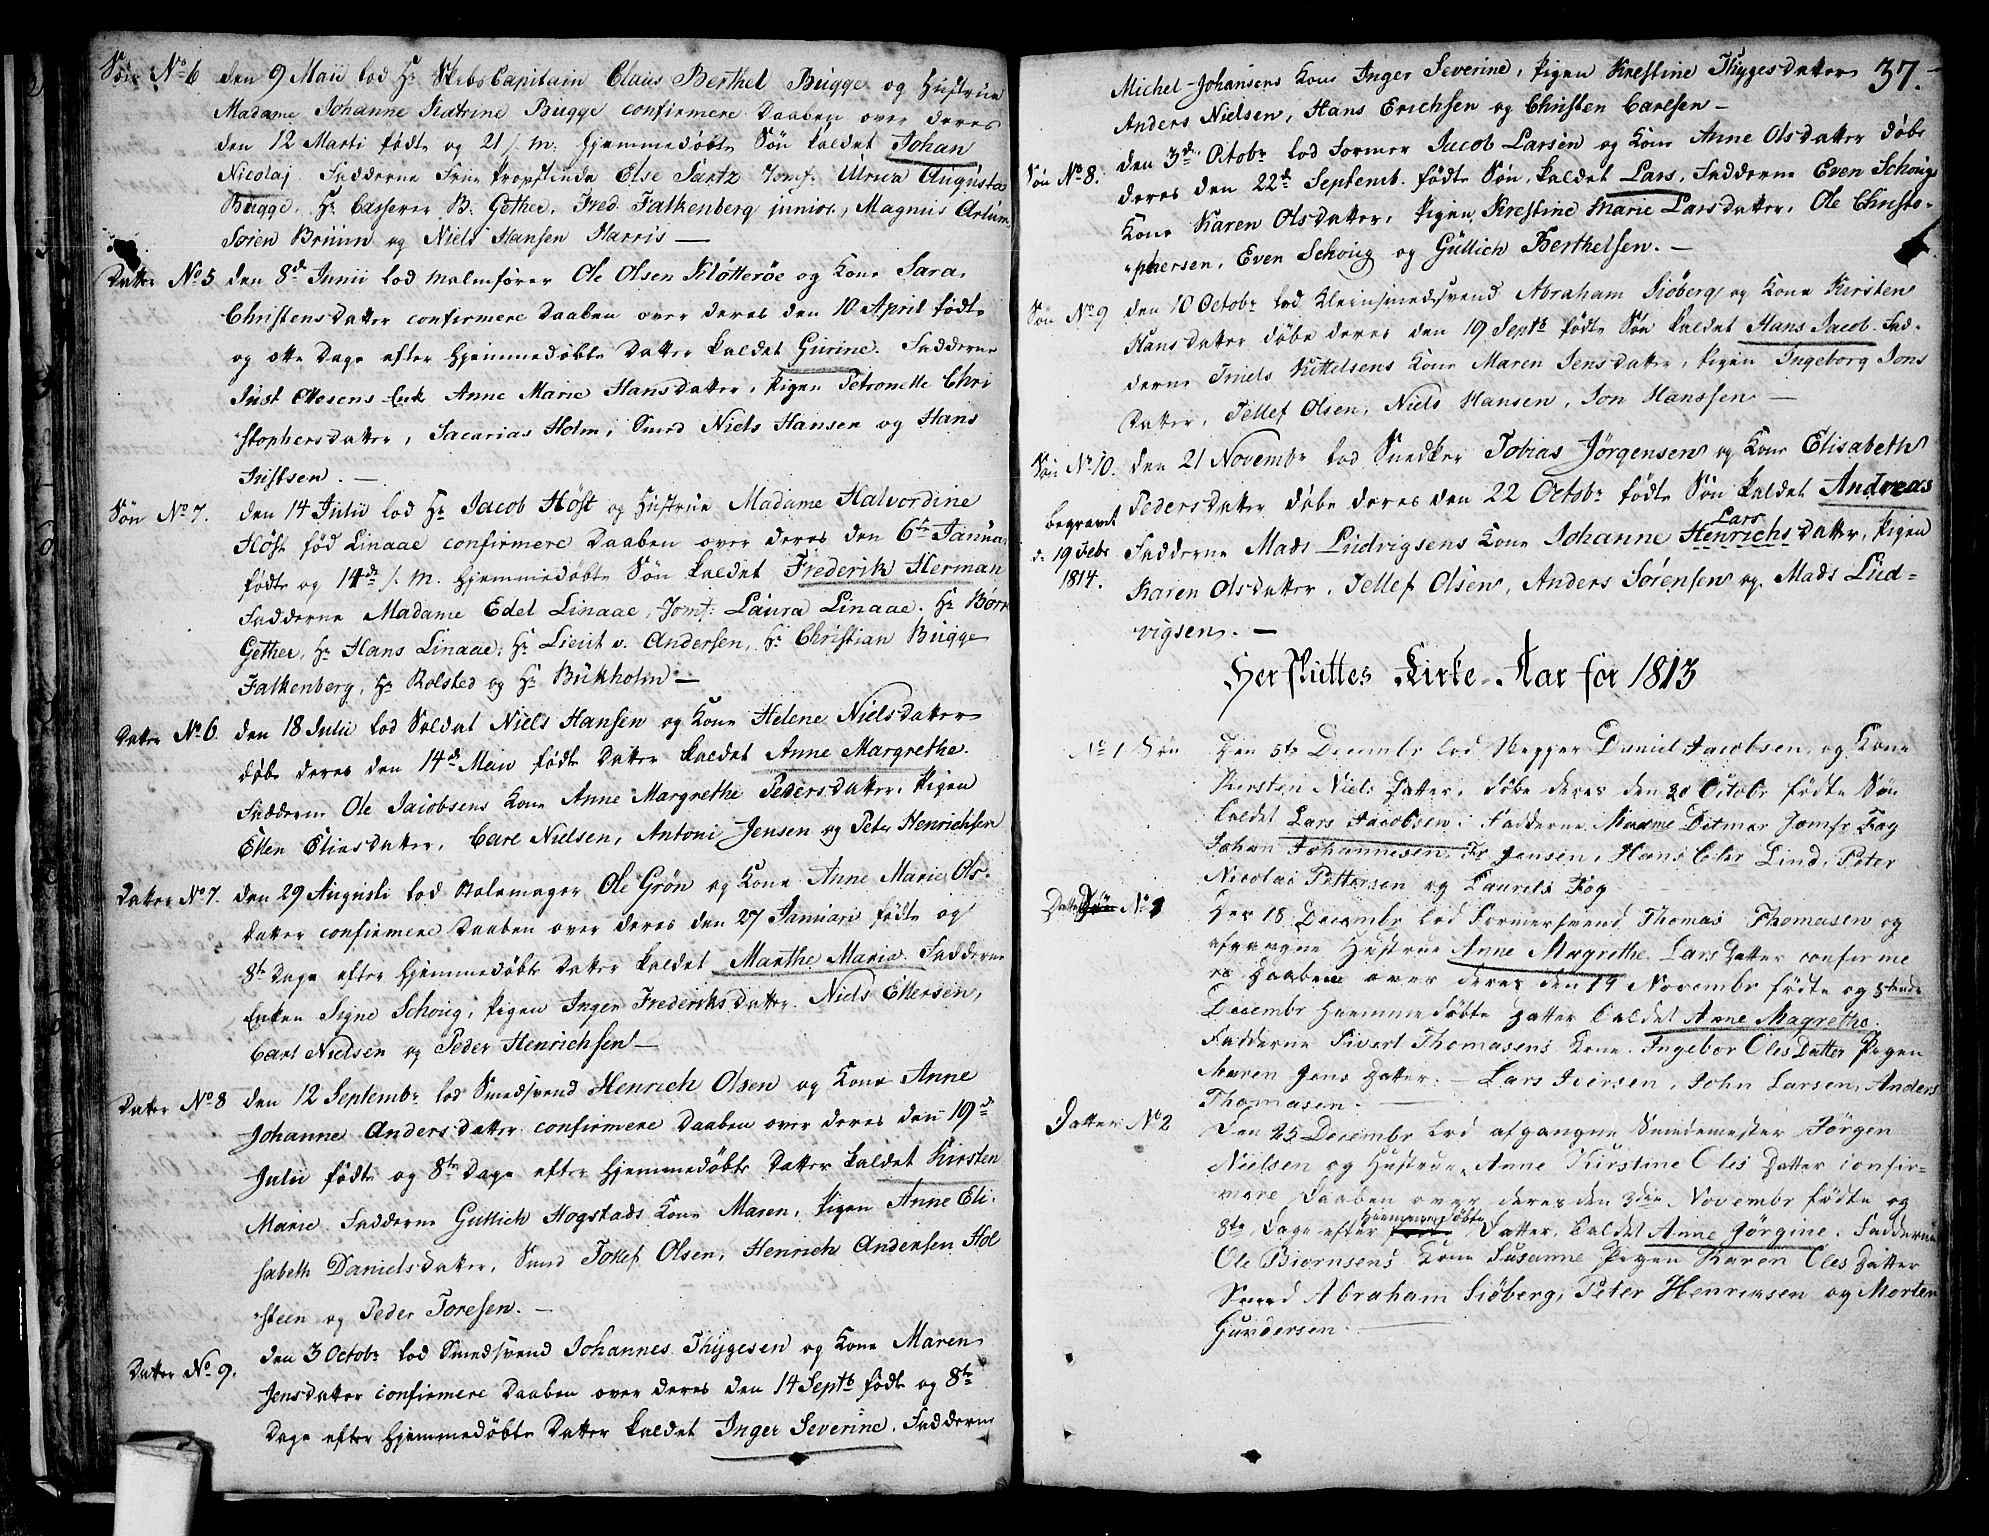 Søn No 6 den 9 Maii lod Hr Skibs Capitain Claus Berthel Bugge og Hustrue
Madame Johanne Katrine Bugge confirmere Daaben over deres
den 12 Marti født og 21 s. m. hjemmedøbte Søn kaldet Johan
Nicolaj. Fadderne Frue Provstinde Else Jomf: Ulrica Augusta
Bugge, Hr Casserer B. Gether, Fred. Falkenberg junior, Magnus
Søren Bruun og Niels Hansen Harris —
Datter No 5 den 8de Junii lod Ole Olsen Kløtterøe og Kone Sara
Christensdatter confirmere Daaben over deres den 10 April født
og otte Dage efter hjemmedøbte Datter kaldet Gurine. Fadderne
Just Ellesens Enk Anne Marie Hansdatter, Pigen Petronelle Chri
stophersdatter, Sacarias Holm, Smed Niels Hansen og Hans
Justsen. —
Søn No 7. den 14 Julii lod Hr Jacob Høst og Hustrue Madame Halvordine
Høst fød Linaae confirmere Daaben over deres den 6te Januar
født og 14de s. m. hjemmedøbte Søn kaldet Frederik Herman
Fadderne Madame Edel Linaae, Jomf: Laura Linaae. Hr Børre
Gether, Hr Hans Linaae, Hr Lieut v. Andersen, Hr Christian Bugge
Falkenberg, Hr Rolsted og Hr Bukholm —
Datter No 6. den 18 Julii lod Soldat Niels Hansen og Kone Helene Nielsdatter
døbe deres den 14de Maii født Datter kaldet Anne Margrethe.
Fadderne Ole Jacobsens Kone Anne Margrethe Pedersdatter, Pigen
Ellen Eliasdatter, Carl Nielsen, Antoni Jensen og Peter Henrichsen
Datter No 7. den 29 Augusti lod Ole Grøn og Kone Anne Marie Ols-
datter confirmere Daaben over deres den 27 Januari født og
8te Dage efter hjemmedøbte Datter kaldet Marthe Maria. Fadderne
Enken Signe Schoug, Pigen Inger Frederiksdatter. Niels Ellersen,
Carl Nielsen og Peder Henrichsen —
Datter No 8 den 12 Septembr lod Smedsvend Henrich Olsen og Kone Anne
Johanne Andersdatter confirmere Daaben over deres den 19de
Julii født og 8te Dage efter hjemmedøbte Datter kaldet Kirsten
Marie. Fadderne Gullich Hogstads Kone Maren, Pigen Anne Eli-
sabeth Danielsdatter, Smed Tollef Olsen, Henrich Andersen Hol
steen og Peder Toresen. —
Datter No 9. den 3 Octobr lod Smedsvend Johannes Thygesen og Kone Maren
Jensdatter confirmere Daaben over deres den 14 Septb født og 8te
Dage efter hjemmedøbte Datter kaldet Inger Severine, Fadderne
37.
Michel Johansens Kone Inger Severine, Pigen Krestine Thygesdatter
Anders Nielsen, Hans Erichsen og Christen Carlsen —
Søn No 8. den 3de Octobr lod Former Jacob Larsen og Kone Anne Olsdatter døbe
deres den 22de Septemb. født Søn kaldet Lars. Fadderne Even Schougs
Kone Karen Olsdatter, Pigen Krestine Marie Larsdatter, Ole Christo-
phersen, Even Schoug og Gullich Berthelsen. —
Søn No 9 den 10 Octobr lod Kleinsmedsvend Abraham Siøberg og Kone Kirsten
Hansdatter døbe deres den 19 Septb født Søn kaldet Hans Jacob. Fad-
derne Kittelsens Kone Maren Jensdatter, Pigen Ingeborg Jons
datter, Tellef Olsen, Niels Hansen, Jon Hanssen —
Søn No 10. den 21 Novembr lod Snedker Tobias Jørgensen og Kone Elisabeth
Pedersdatter døbe deres den 22 Octobr født Søn kaldet Andreas
begravet
d. 19 Febr
1814.
Fadderne Mads Ludvigsens Kone Johanne Henrichs Lars datter, Pigen
Karen Olsdatter, Tellef Olsen, Anders Sørensen og Mads Lud-
vigsen. —
Her sluttes Kirke-Aar for 1813
No 1 Søn Den 5te Decembr lod Daniel Jacobsen og Kone
Kersten Niels Datter, døbe deres den 20 Octobr fødte Søn
kaldet Lars Jacobsen, Fadderne Madme Ditmar Jomfr Fog
Johan Johannesen, Fr Jensen, Hans Lind, Peter
Nicolai Pettersen og Laurits Fog
Datter No 1 Den 18 Decembr lod Formersvend Thomas Thomasen og
afgangne Hustrue Anne Magrethe Lars Datter confirme
re Daaben over deres den 19 Novembr fødte og 5tende
Decembr hiemmedøbte Datter kaldet Anne Magrethe.
Fadderne Sivert Thomasens Kone Ingebor Oles Datter Pigen
Maren Jens Datter. — Lars Iversen, John Larsen, Anders
Thomasen. —
Datter No 2 Den 25 Decembr lod afgangne Smedemester Jørgen
Nielsen og Hustrue Anne Kirstine Oles Datter confir-
mere Daaben over deres den 3die Novembr fødte og
8te Dage efter hiemmedøbte Datter, kaldet Anne Jørgine. Fadderne
Ole Biørnsens Kone Susanne Pigen Karen Oles Datter
Smed Abraham Siøberg, Peter Henriksen og Morten
Gundersen.